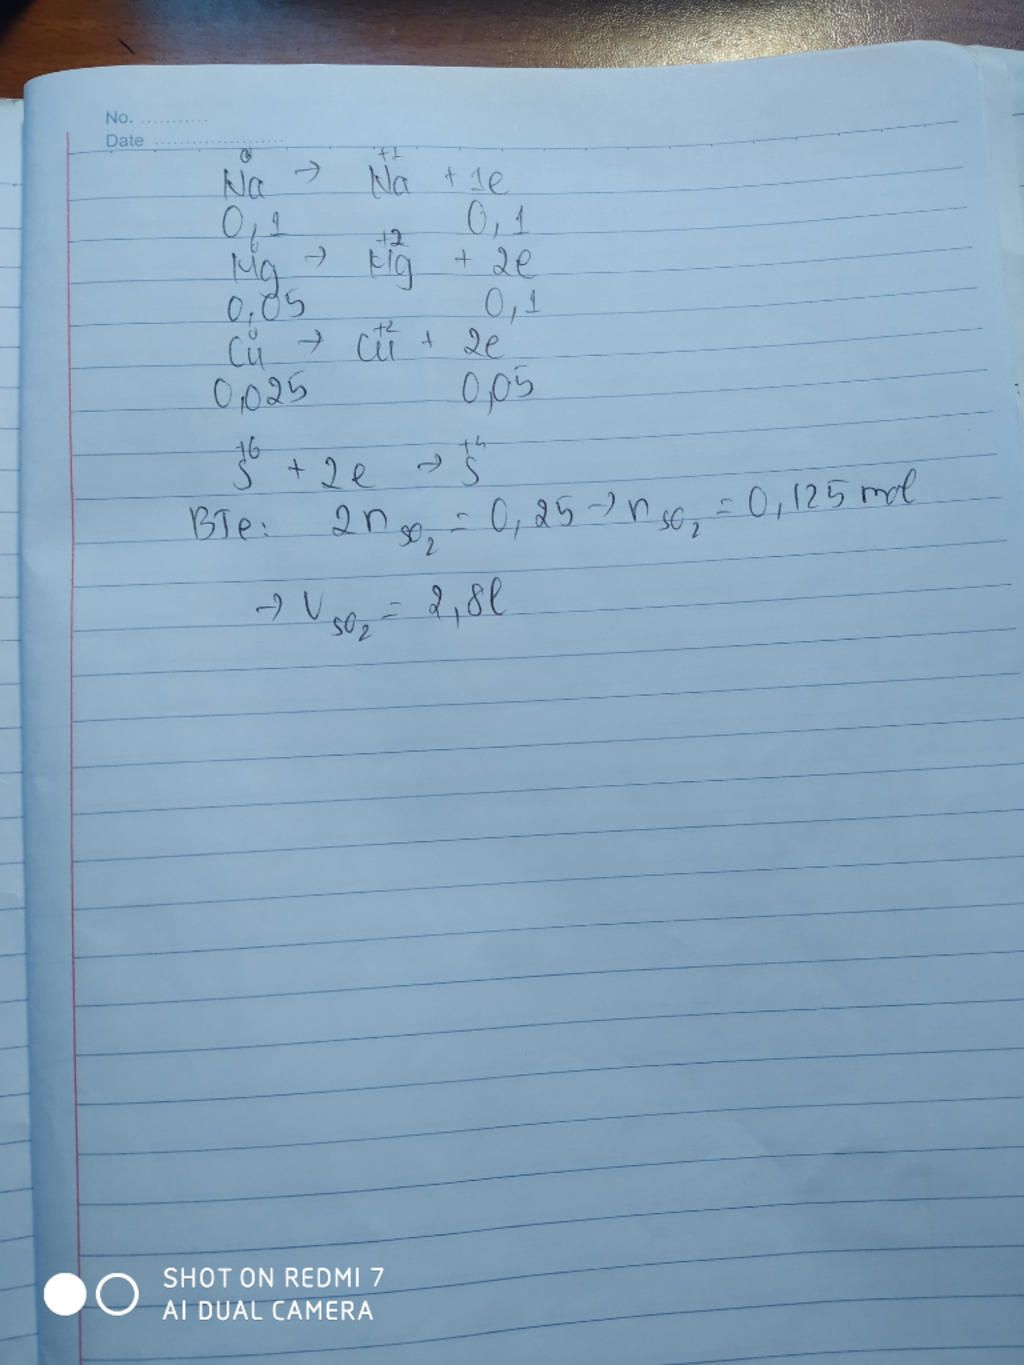 No. ...........
Date ......................
0 +1
Na → Na + 1e
0,1 0,1
0 +2
Mg → Mg + 2e
0,05 0,1
0 +2
Cu → Cu + 2e
0,025 0,05
+6 +4
S + 2e → S
BTe: 2n SO2 = 0,25 → n SO2 = 0,125 mol
→ V SO2 = 2,8l
SHOT ON REDMI 7
AI DUAL CAMERA